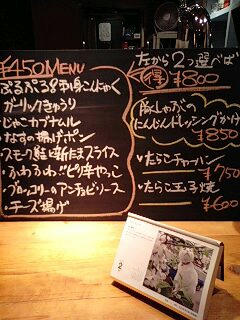 ¥450MENU
ぷるぷる8串身こんにゃく
ガーリックきゅうり
・じゃこカブナムル
・なすの揚げポン
・スモーク鮭と新たまスライス
・ふわふわ!!ピリ辛やっこ
・ブロッコリーのアンチョビソース
・チーズ揚げ
左から2つ選べば
得 ¥800
豚しゃぶの
にんじんドレッシングかけ
¥850
・たらこチャーハン
¥750
・たらこ玉子焼
¥600
2